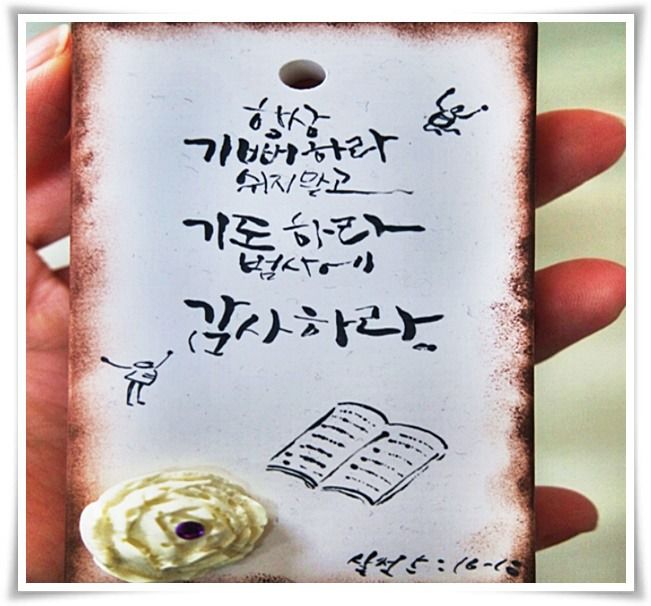 항상
기뻐하라
쉬지말고
기도하라
범사에
감사하라..
살전 5:16-18